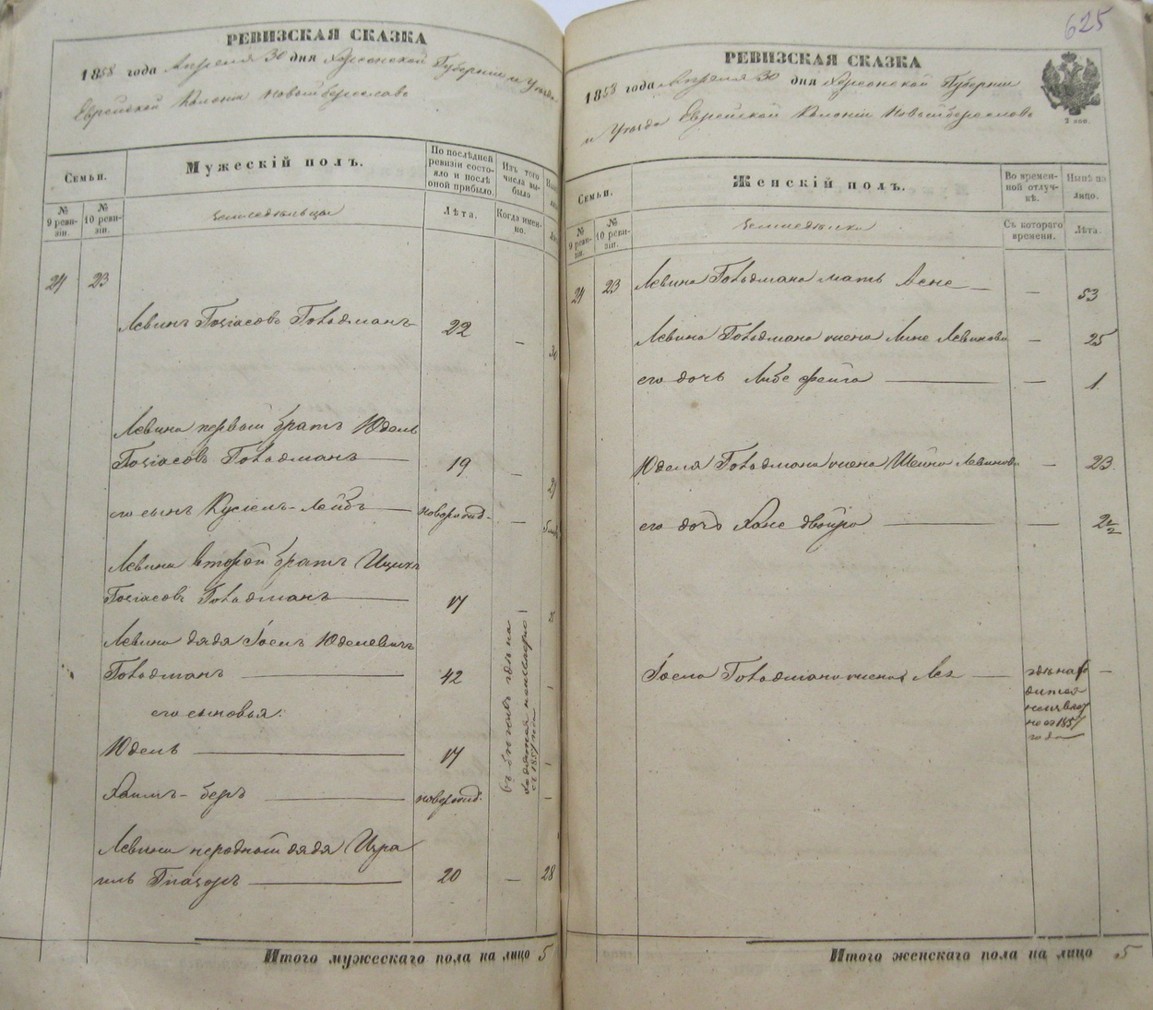 РЕВИЗСКАЯ СКАЗКА
1858 года Апреля 30 дня Херсонской Губернии и Уезда
Еврейской Колонии Новый береслав
Семьи.
Мужескій полъ.
По последней ревизіи состояло и после оной прибыло.
Изъ того числа выбыло
№ 9 ревизіи.
№ 10 ревизіи.
земледельцы
Лѣта.
Когда именно.
24 23
Левинъ Гоsіасовъ Гольдманъ 22 — 30
Левина первый братъ Юдель
Гоsіасовъ Гольдманъ — 19 —
его сынъ Кусіель-Лейбъ — новорожд. —
Левина второй братъ Ицикъ
Гоsіасовъ Гольдманъ — 17
Левина дядя Іосель Юделевичъ
Гольдманъ — 42
его сыновья:
Юдель — 17
Хаимъ-беръ — новорожд.
въ 1857
Левина неродный дядя Изра
иль — 20 — 28
Итого мужескаго пола на лицо 5
625
РЕВИЗСКАЯ СКАЗКА
1858 года Апреля 30 дня Херсонской Губерніи
и Уезда Еврейской Колоніи Новый береславъ
2 коп.
Семьи.
Женскій полъ.
Во временной отлучкѣ.
Нынѣ на лицо.
№ 9 ревизіи.
№ 10 ревизіи.
земледелки
Съ котораго времени.
Лѣта.
24 23 Левина Гольдмана мать Асне — — 53
Левина Гольдмана жена Лине Левинова — 25
его дочь Либе фейга — — 1
Юделя Гольдмана жена Шейна Левинова — 23
его дочь Хане двойра — — 2½
Іосля Гольдмана жена Леа — —
где нахо
дится
неизвест
но съ 1857
года
Итого женскаго пола на лицо 5